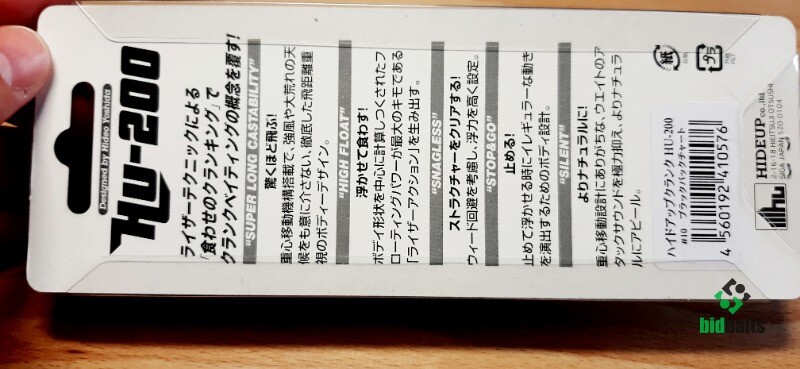 Designed by Hideo Yoshida
HU-200
ライザーテクニックによる
「食わせのクランキング」で
クランクベイティングの概念を覆す!
“SUPER LONG CASTABILITY”
驚くほど飛ぶ!
重心移動機構搭載で、強風や大荒れの天
候をも意に介さない、徹底した飛距離重
視のボディーデザイン。
“HIGH FLOAT”
浮かせて食わす!
ボディ形状を中心に計算しつくされたフ
ローティングパワーが最大のキモである
「ライザーアクション」を生み出す。
“SNAGLESS”
ストラクチャーをクリアする!
ウィード回避を考慮し、浮力を高く設定。
“STOP&GO”
止める!
止めて浮かせる時にイレギュラーな動き
を演出するためのボディ設計。
“SILENT”
よりナチュラルに!
重心移動設計にありがちな、ウエイトのア
タックサウンドを極力抑え、よりナチュラ
ルにアピール。
ハイドアップクランク HU-200
#10 ブラックバックチャート
4 560192 410576
紙
プラ
hu
HIDEUP co.,ltd
2-16-18 HEITSUJI OTSUSHI
SIGA JAPAN 520-0104
bidbaits